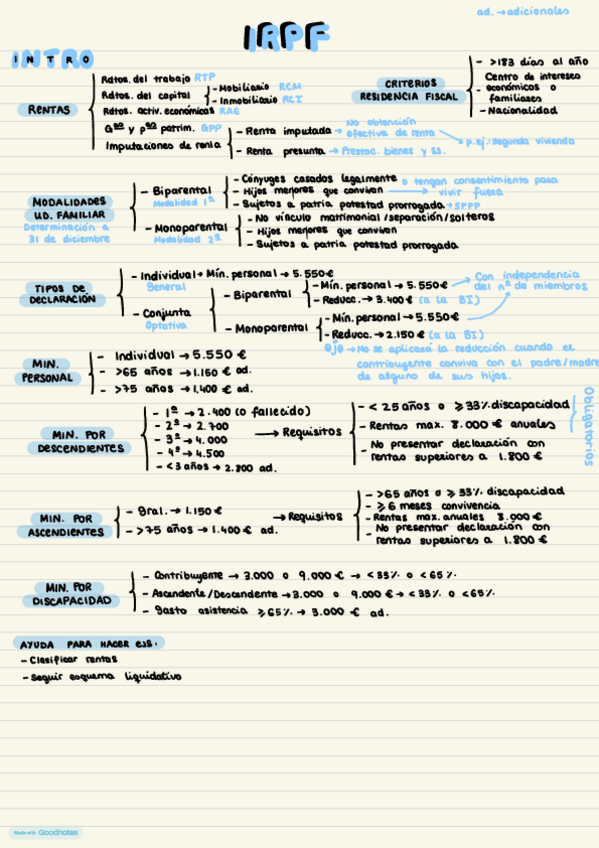 ad. → adicionales
IRPF
INTRO
RENTAS
Rdtos. del trabajo RTP
Rdtos. del capital
- Mobiliario RCM
- Inmobiliario RCI
Rdtos. activ. económicas RAE
Gªˢ y pªˢ patrim. GPP
Imputaciones de renta
- Renta imputada → No obtención efectiva de renta → p.ej.: segunda vivienda
- Renta presunta → Prestac. bienes y ss.
CRITERIOS
RESIDENCIA FISCAL
- >183 días al año
- Centro de intereses
económicos o
familiares
- Nacionalidad
MODALIDADES
UD. FAMILIAR
Determinación a
31 de diciembre
- Biparental
Modalidad 1ª
- Cónyuges casados legalmente
- Hijos menores que convivan → o tengan consentimiento para vivir fuera
- Sujetos a patria potestad prorrogada → SPPP
- Monoparental
Modalidad 2ª
- No vínculo matrimonial/separación/solteros
- Hijos menores que convivan
- Sujetos a patria potestad prorrogada
TIPOS DE
DECLARACIÓN
- Individual → Mín. personal → 5.550€
General
- Conjunta
Optativa
- Biparental
- Mín. personal → 5.550€
- Reducc. → 3.400€ (a la BI)
- Monoparental
- Mín. personal → 5.550€
- Reducc. → 2.150€ (a la BI)
Con independencia
del nº de miembros
Ojo → No se aplicará la reducción cuando el
contribuyente conviva con el padre/madre
de alguno de sus hijos.
MIN.
PERSONAL
- Individual → 5.550 €
- >65 años → 1.150 € ad.
- >75 años → 1.400 € ad.
MIN. POR
DESCENDIENTES
- 1º → 2.400 (o fallecido)
- 2º → 2.700
- 3º → 4.000
- 4º → 4.500
- <3 años → 2.800 ad.
→ Requisitos
- < 25 años o ⩾33% discapacidad
- Rentas max. 8.000 € anuales
- No presentar declaración con
rentas superiores a 1.800 €
Obligatorios
MIN. POR
ASCENDIENTES
- Gral. → 1.150 €
- >75 años → 1.400 € ad.
→ Requisitos
- >65 años o ⩾ 33% discapacidad
- ⩾ 6 meses convivencia
- Rentas max. anuales 8.000 €
- No presentar declaración con
rentas superiores a 1.800 €
MIN. POR
DISCAPACIDAD
- Contribuyente → 3.000 o 9.000 € → <33% o <65%
- Ascendente/Descendente → 3.000 o 9.000 € → <33% o <65%
- Gasto asistencia ⩾65% → 3.000 € ad.
AYUDA PARA HACER EJS.
- Clasificar rentas
- Seguir esquema liquidativo
Made with Goodnotes